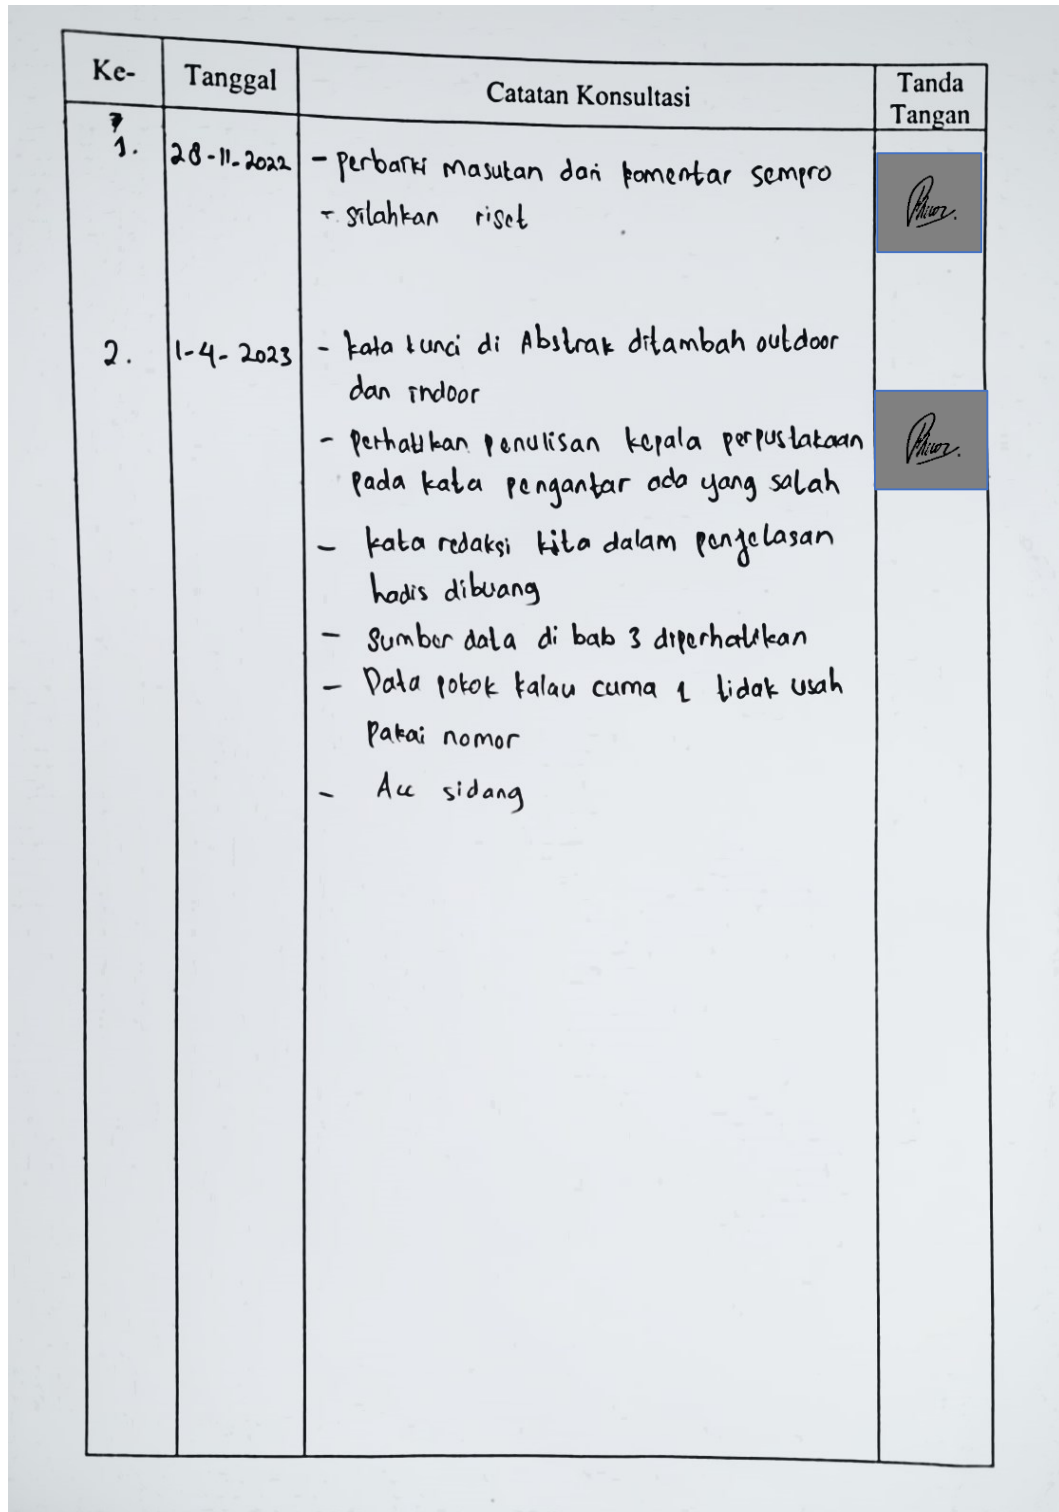 Ke- Tanggal Catatan Konsultasi Tanda Tangan
1. 28-11-2022 - perbaiki masukan dari komentar sempro
- silahkan riset
2. 1-4-2023 - kata kunci di Abstrak ditambah outdoor
dan indoor
- Perhatikan penulisan kepala perpustakaan
pada kata pengantar ada yang salah
- kata redaksi kita dalam penjelasan
hadis dibuang
- Sumber data di bab 3 diperhatikan
- Data pokok kalau cuma 1 tidak usah
Pakai nomor
- Acc sidang